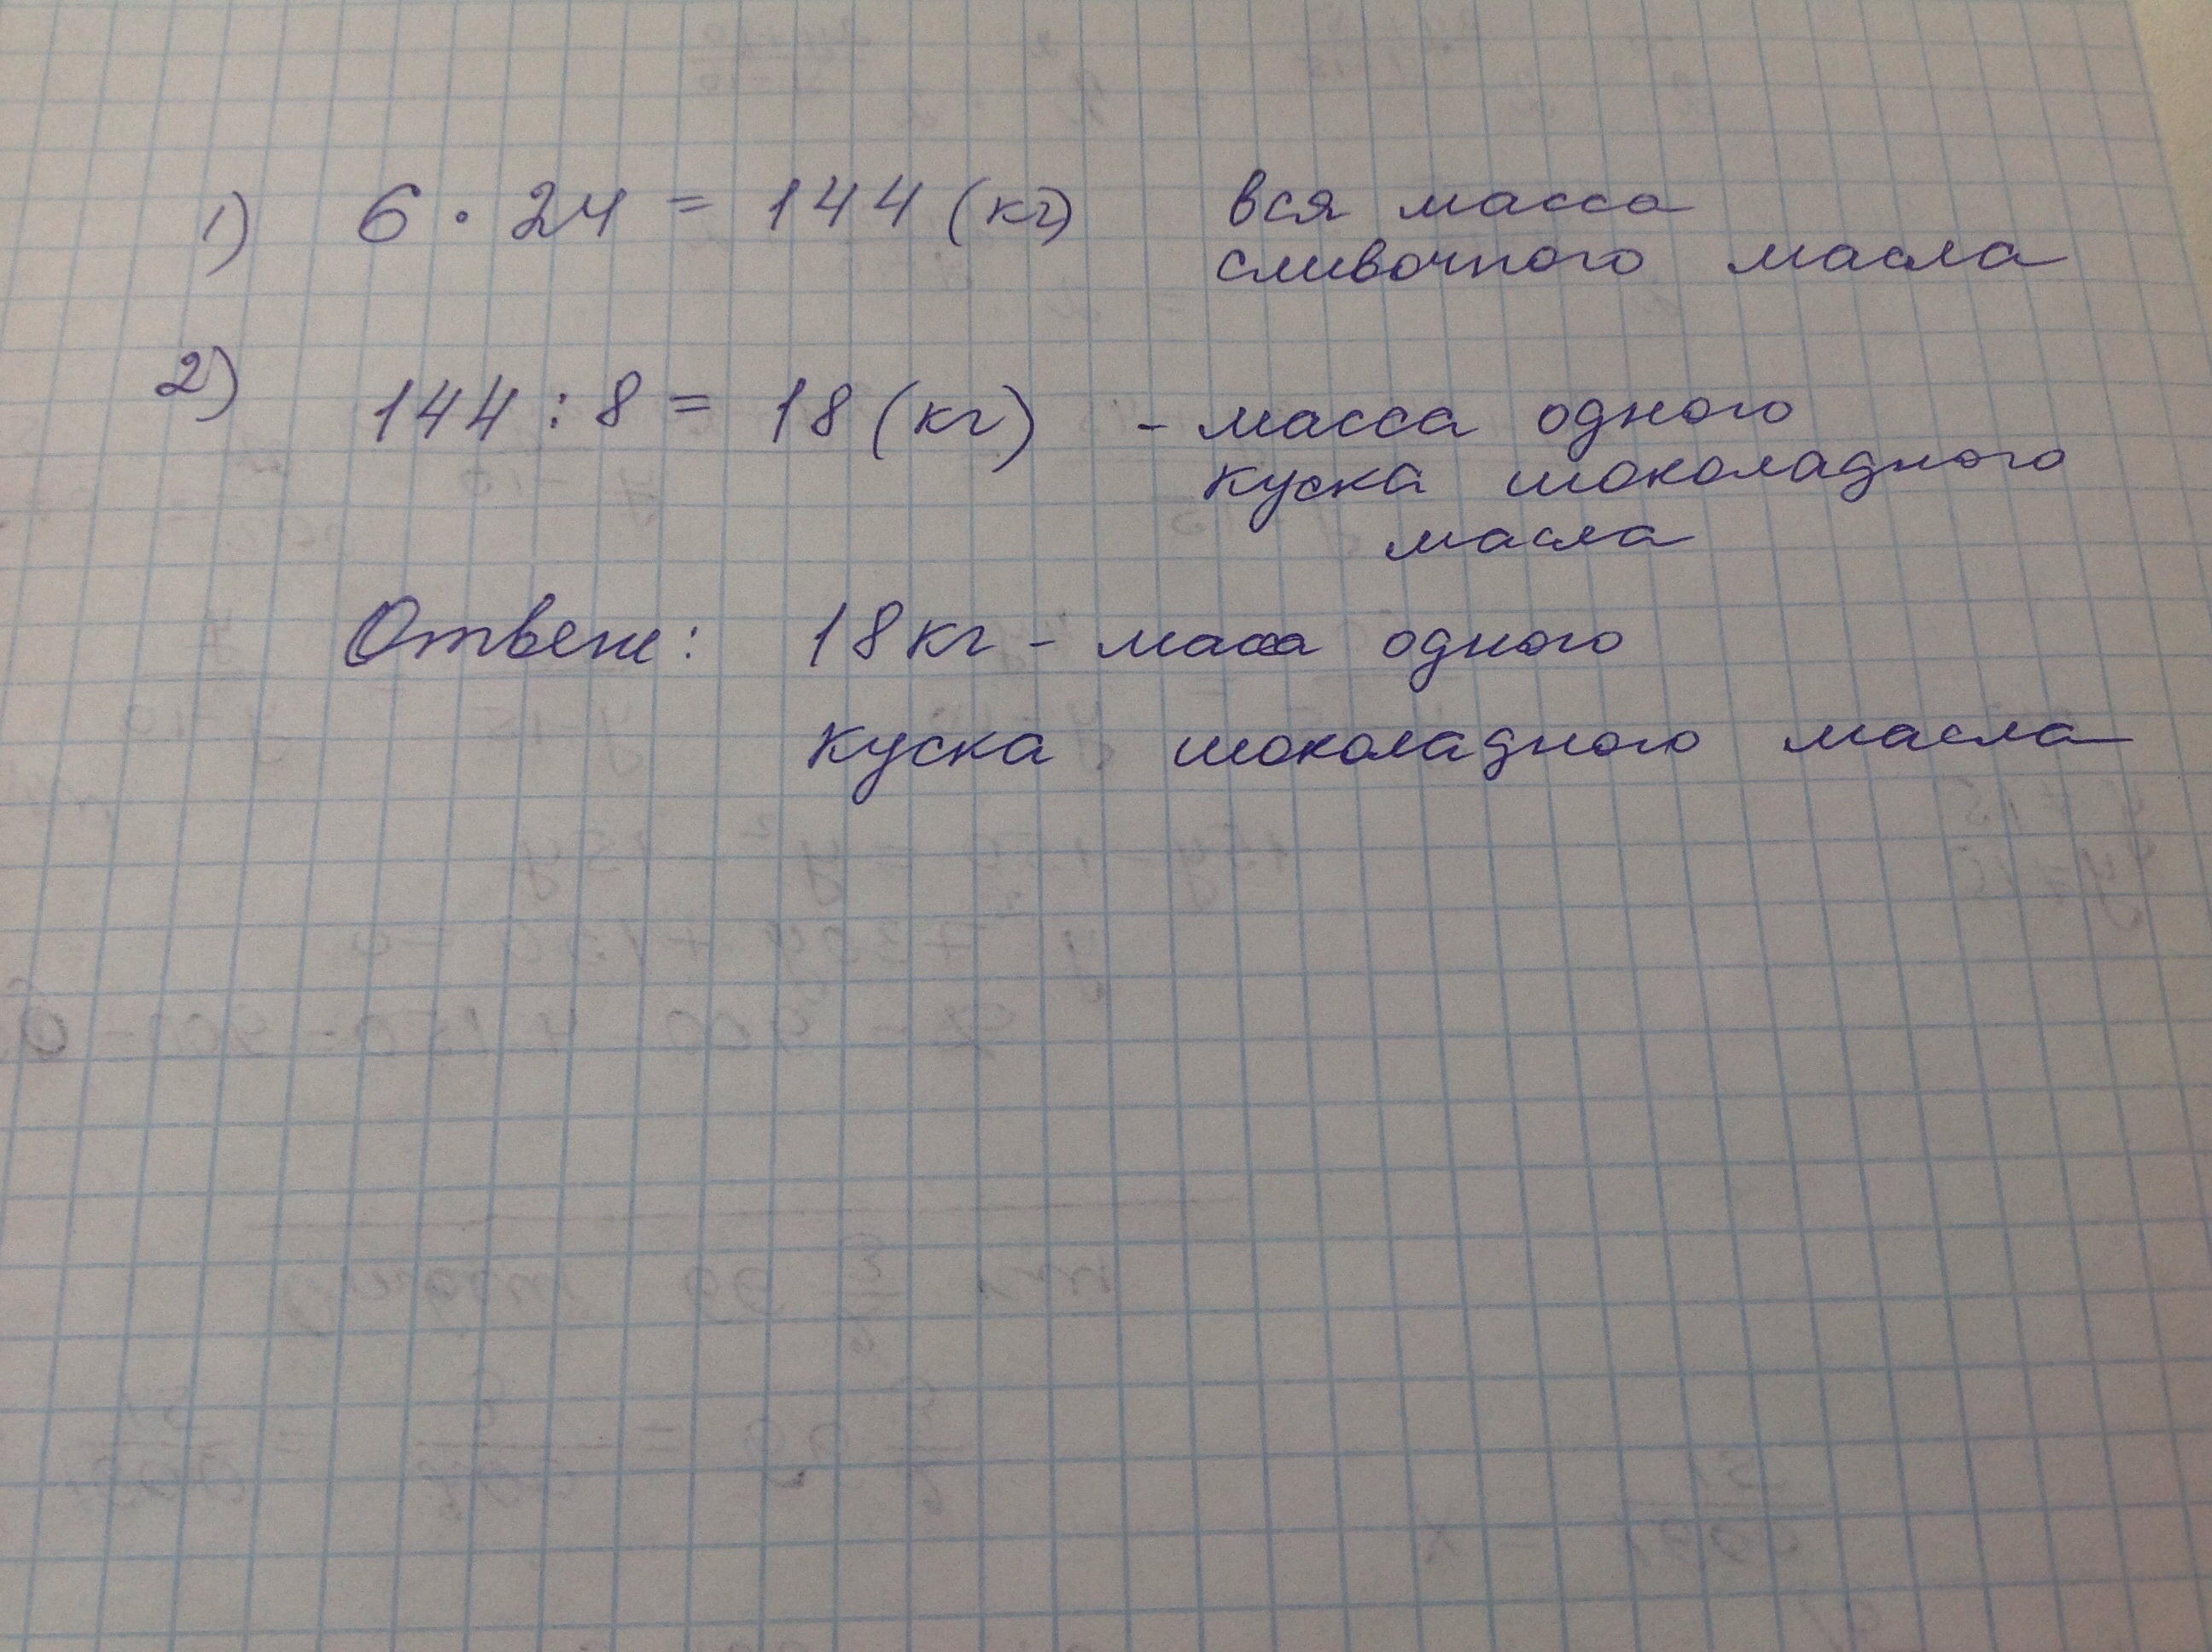 1) 6 · 24 = 144 (кг) вся масса
сливочного масла
2) 144 : 8 = 18 (кг) - масса одного
куска шоколадного
масла
Ответ: 18 кг - масса одного
куска шоколадного масла